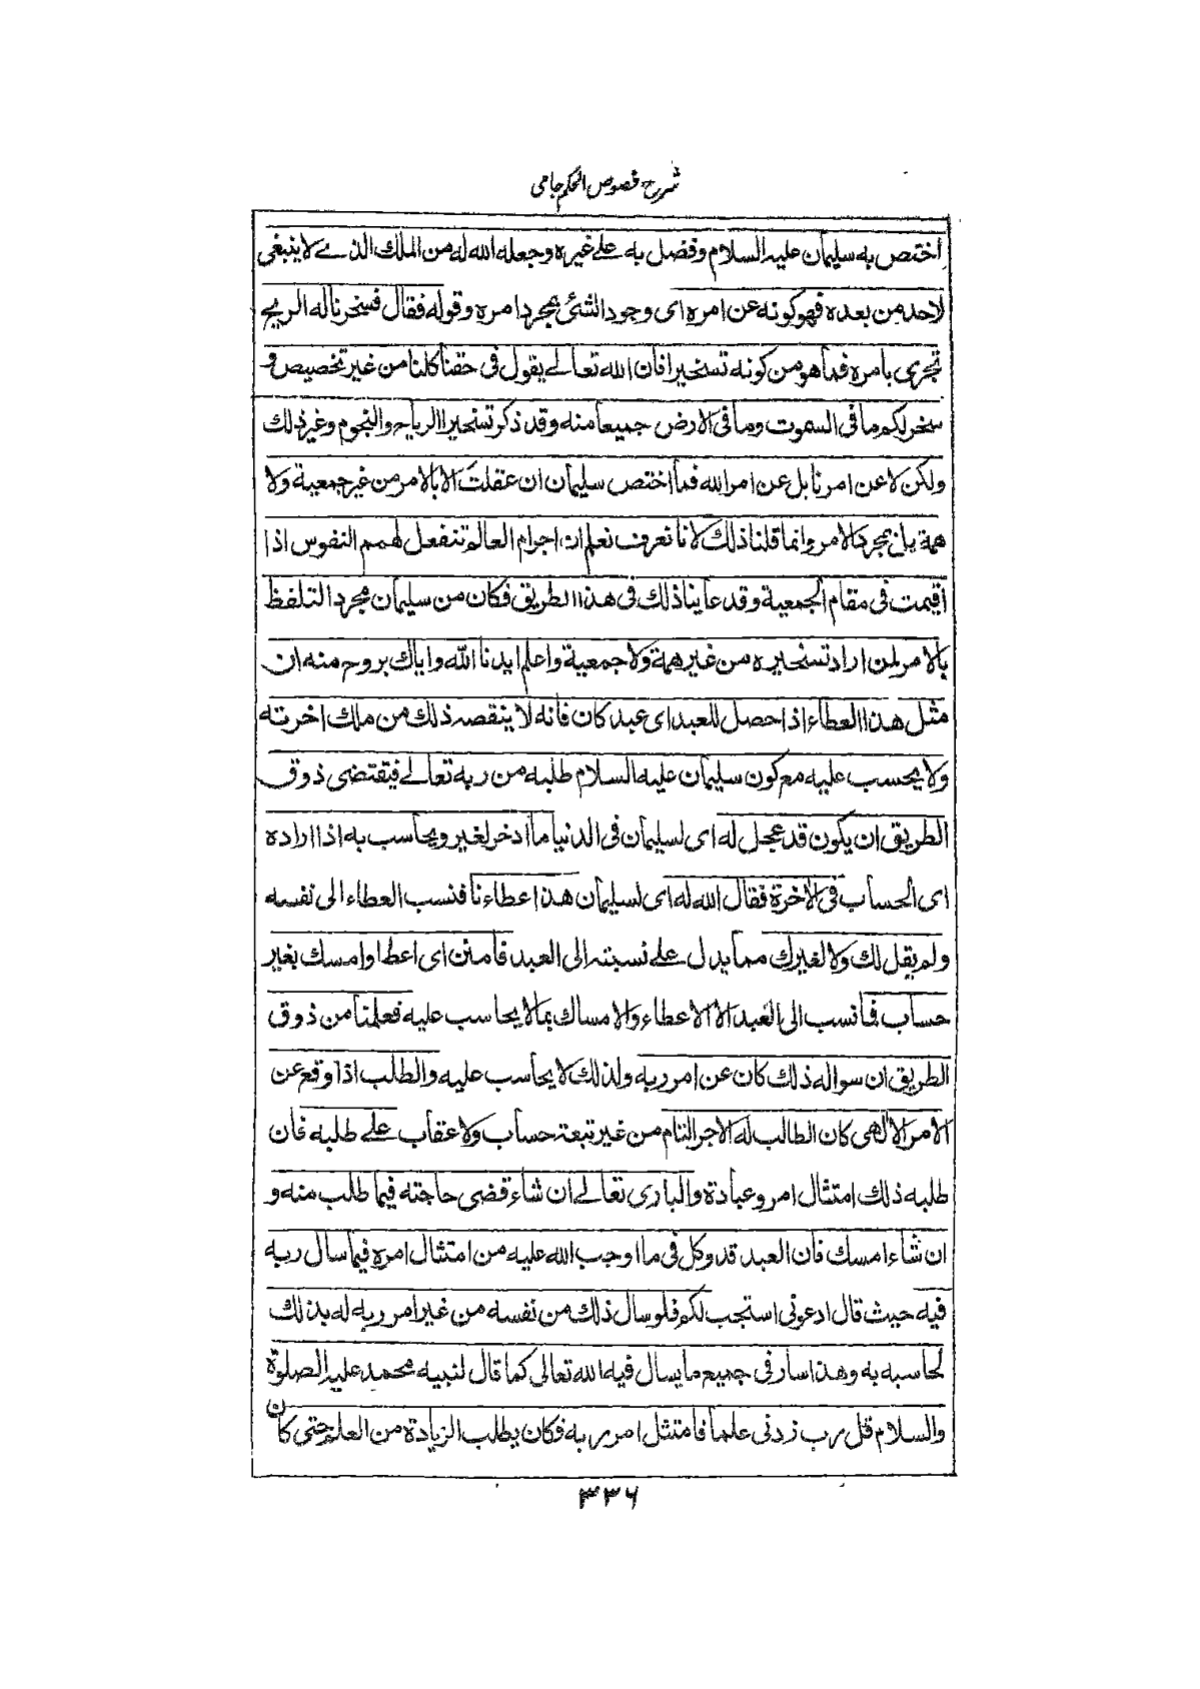 شرح فصوص الحکم جامی
اختص به سليمان عليه السلام وفضل به علے غيره وجعله الله له من الملك الذے لا ينبغی
لاحد من بعده فهو كونه عن امره ای وجود الشئ بمجرد امره وقوله فقال فسخرنا له الريح
تجری بامره فما هو من كونه تسخيرا فان الله تعالے يقول فی حقنا كلنا من غير تخصيص و
سخر لكم ما فی السموت وما فی الارض جميعا منه وقد ذكر تسخير الرياح والنجوم وغير ذلك
ولكن لا عن امرنا بل عن امر الله فما اختص سليمان ان عقلت الا بالامر من غير جمعية ولا
همة بل بمجرد الامر وانما قلنا ذلك لانا نعرف نعلم ان اجرام العالم تنفعل لهمم النفوس اذا
اقيمت فی مقام الجمعية وقد عاينا ذلك فی هذا الطريق فكان من سليمان مجرد التلفظ
بالامر لمن اراد تسخيره من غير همة ولا جمعية واعلم ايدنا الله واياك بروح منه ان
مثل هذا العطاء اذا حصل للعبد ای عبد كان فانه لا ينقصه ذلك من ملك اخرته
ولا يحسب عليه مع كون سليمان عليه السلام طلبه من ربه تعالے فيقتضی ذوق
الطريق ان يكون قد عجل له ای لسليمان فی الدنيا ما ادخر لغير ويحاسب به اذا اراده
ای الحساب فی الاخرة فقال الله له ای لسليمان هذا عطاءنا فنسب العطاء الی نفسه
ولم يقل لك ولا لغيرك مما يدل علے نسبته الی العبد فامنن ای اعط او امسك بغير
حساب فما نسب الی العبد الا الاعطاء والامساك بما لا يحاسب عليه فعلمنا من ذوق
الطريق ان سواله ذلك كان عن امر ربه ولذلك لا يحاسب عليه والطلب اذا وقع عن
الامر الالهی كان الطالب له الاجر التام من غير تبعة حساب ولا عقاب علے طلبه فان
طلبه ذلك امتثال امر وعبادة والباری تعالے ان شاء قضی حاجته فيما طلب منه و
ان شاء امسك فان العبد قد وكل فی ما اوجب الله عليه من امتثال امره فيما سال ربه
فيه حيث قال ادعونی استجب لكم فلو سال ذلك من نفسه من غير امر ربه له بذلك
لحاسبه به وهذا سار فی جميع ما يسال فيه الله تعالی كما قال لنبيه محمد عليه الصلوة
والسلام قل رب زدنی علما فامتثل امر ربه فكان يطلب الزيادة من العلم حتی كان
۳۳۶